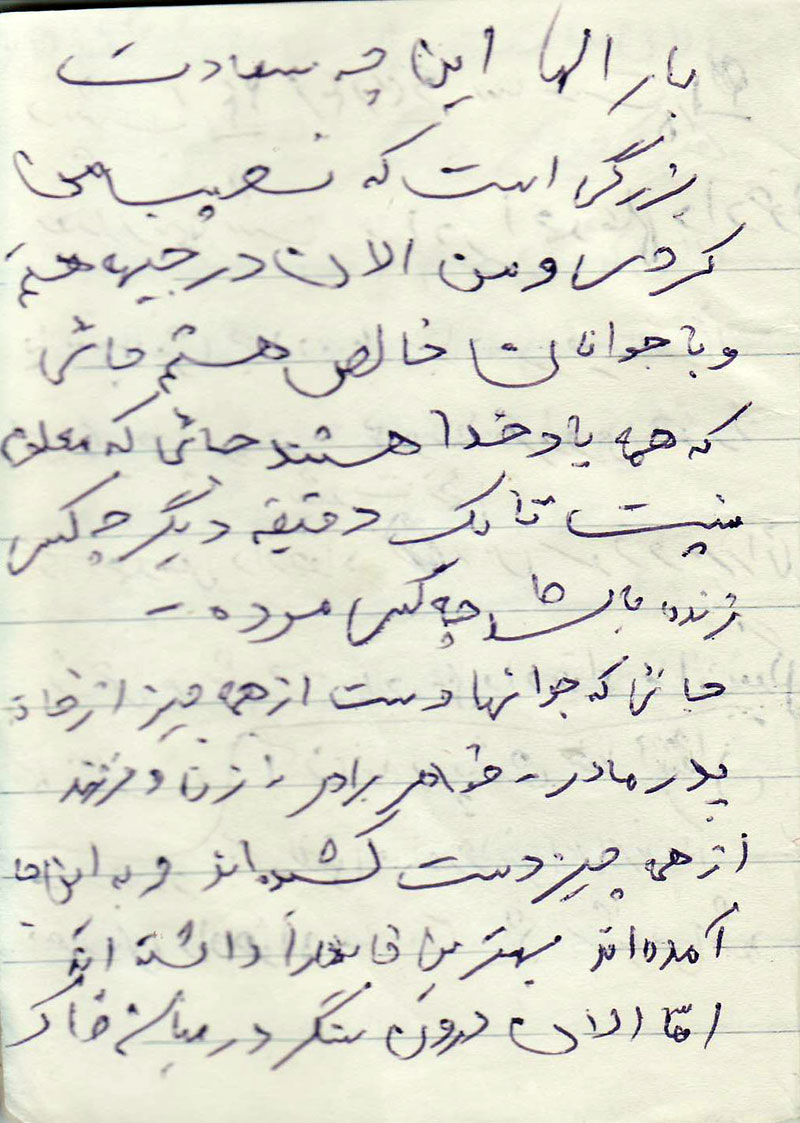 بار الها این چه سعادت
بزرگی است که نصیب من
کردی و من الان در جبهه هستم
و با جوانان خالص هستم جائی
که همه یاد خدا هستند جائی که معلوم
نیست تا یک دقیقه دیگر چه کس
زنده باشد چه کس مرده -
جائی که جوانها دست از همه چیز از خانه
پدر مادر - خواهر برادر - زن و فرزند
از همه چیز دست کشیده‌اند و به این جا
آمده‌اند بهترین خانه‌ها را داشته اند
امّا الان درون سنگر در میان خاک